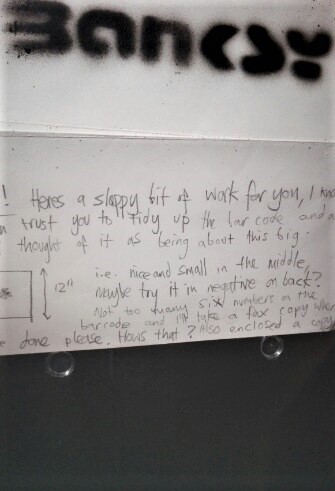 Banksy
! Heres a sloppy bit of work for you, I
trust you to Tidy up the bar code and
thought of it as being about this big.
i.e. nice and small in the middle,
12" maybe try it in negative on back?
Not too many silly numbers on the
barcode and I'll take a fax copy when
done please. Hows that? Also enclosed a copy